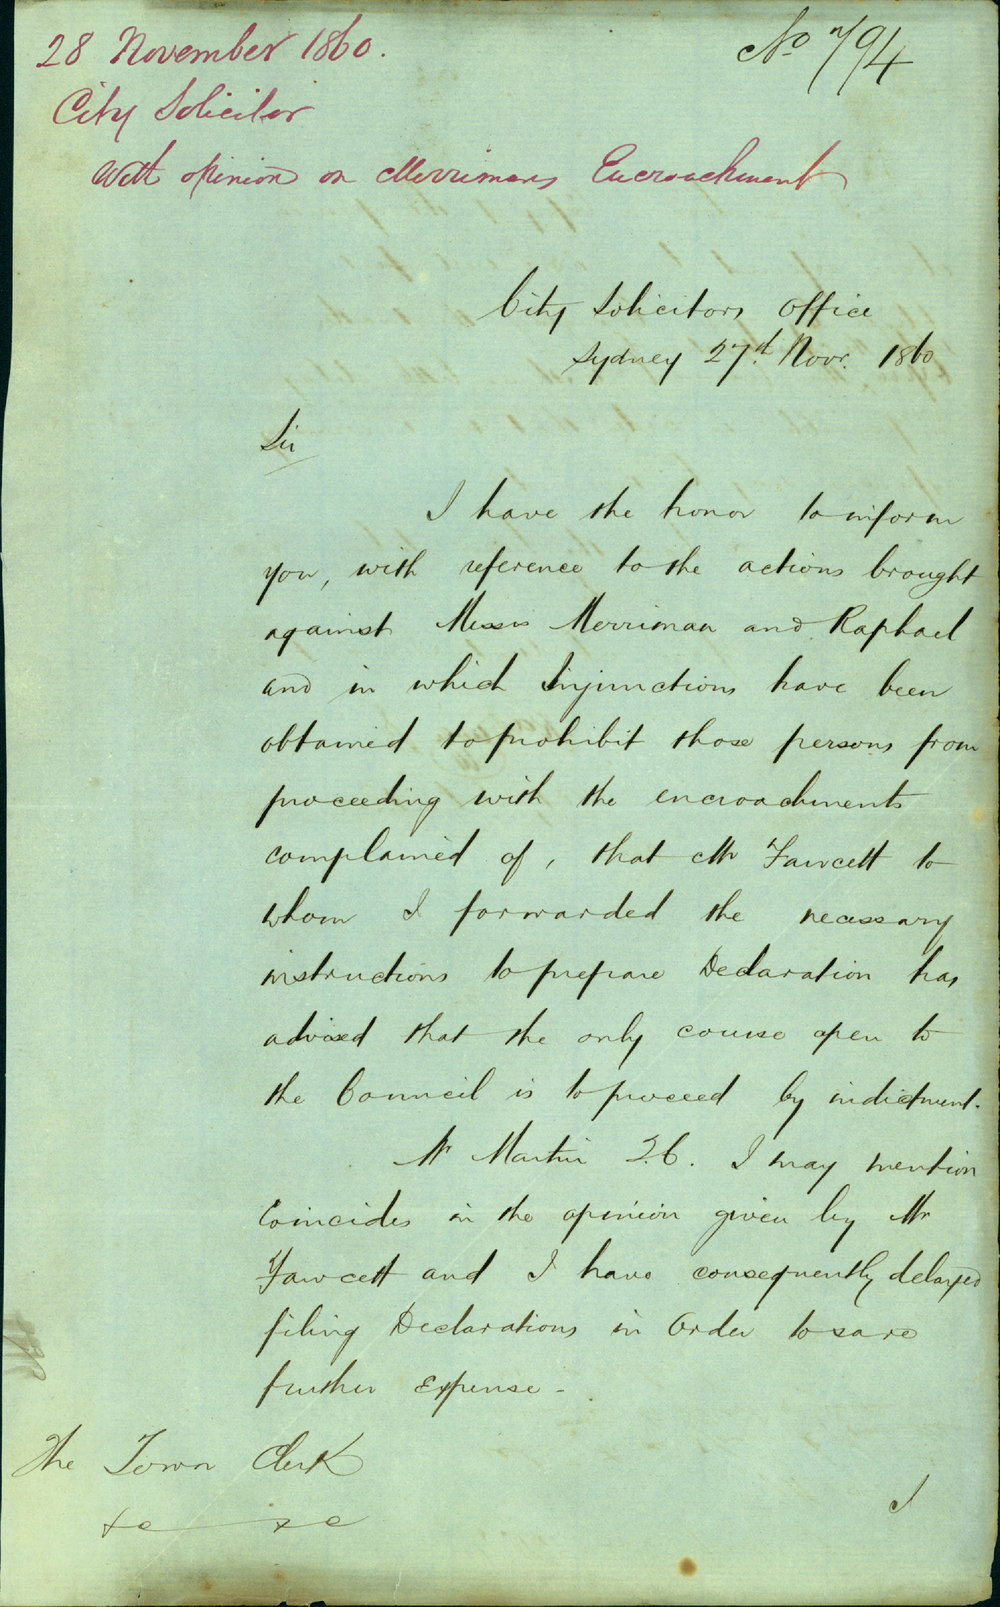 28 November 1860.
No 794
City Solicitor
With opinion on Merrimans Encroachment
City Solicitors Office
Sydney 27th Novr. 1860
Sir
I have the honor to inform
you, with reference to the actions brought
against Messrs Merriman and Raphael
and in which Injunctions have been
obtained to prohibit those persons from
proceeding with the encroachments
complained of, that Mr Fawcett to
whom I forwarded the necessary
instructions to prepare Declaration has
advised that the only course open to
the Council is to proceed by indictment.
Mr Martin Q.C. I may mention
Coincides in the opinion given by Mr
Fawcett and I have consequently delayed
filing Declarations in Order to save
further Expense -
The Town Clerk
&c &c
I